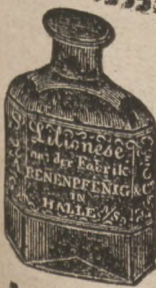 Lilionese
aus der Fabrik
RENENPFENIG & C
IN
HALLE A/S.